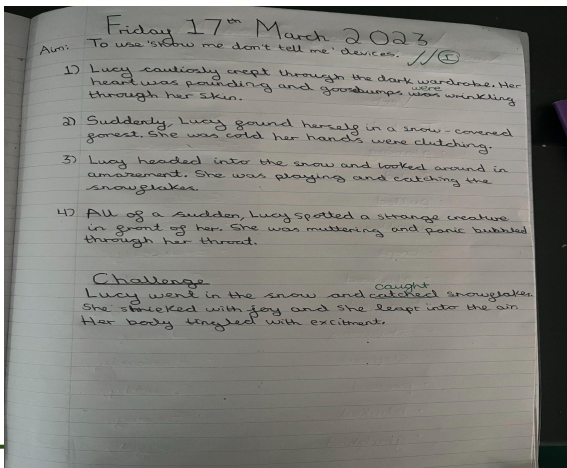 Friday 17th March 2023
Aim: To use 'show me don't tell me' devices. // I
1) Lucy cautiosly crept through the dark wardrobe. Her
heart was pounding and goosbumps were was wrinkling
through her skin.
2) Suddenly, Lucy found herself in a snow-covered
forest. She was cold her hands were clutching.
3) Lucy headed into the snow and looked around in
amazement. She was playing and catching the
snowflakes.
4) All of a sudden, Lucy spotted a strange creature
in front of her. She was muttering and panic bubbled
through her throat.
Challenge
caught
Lucy went in the snow and catched snowflakes.
She shrieked with joy and she leapt into the air.
Her body tingled with excitment.